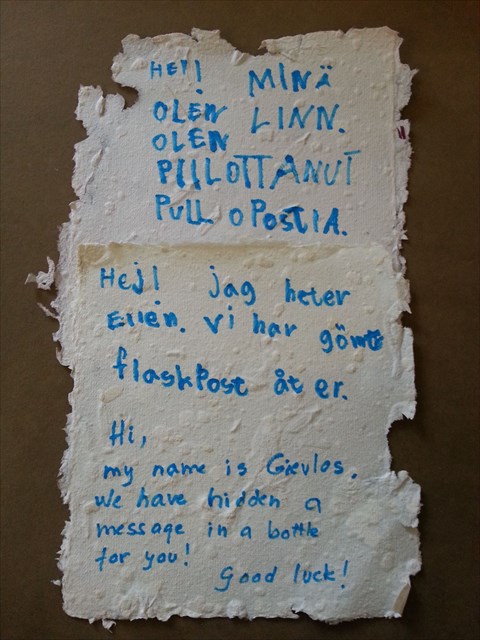 HEI! MINÄ
OLEN LINN.
OLEN
PIILOTTANUT
PULLOPOSTIA.
Hej! jag heter
Ellen. vi har gömt
flaskPost åt er.
Hi,
my name is Gievlos.
we have hidden a
message in a bottle
for you!
Good luck!